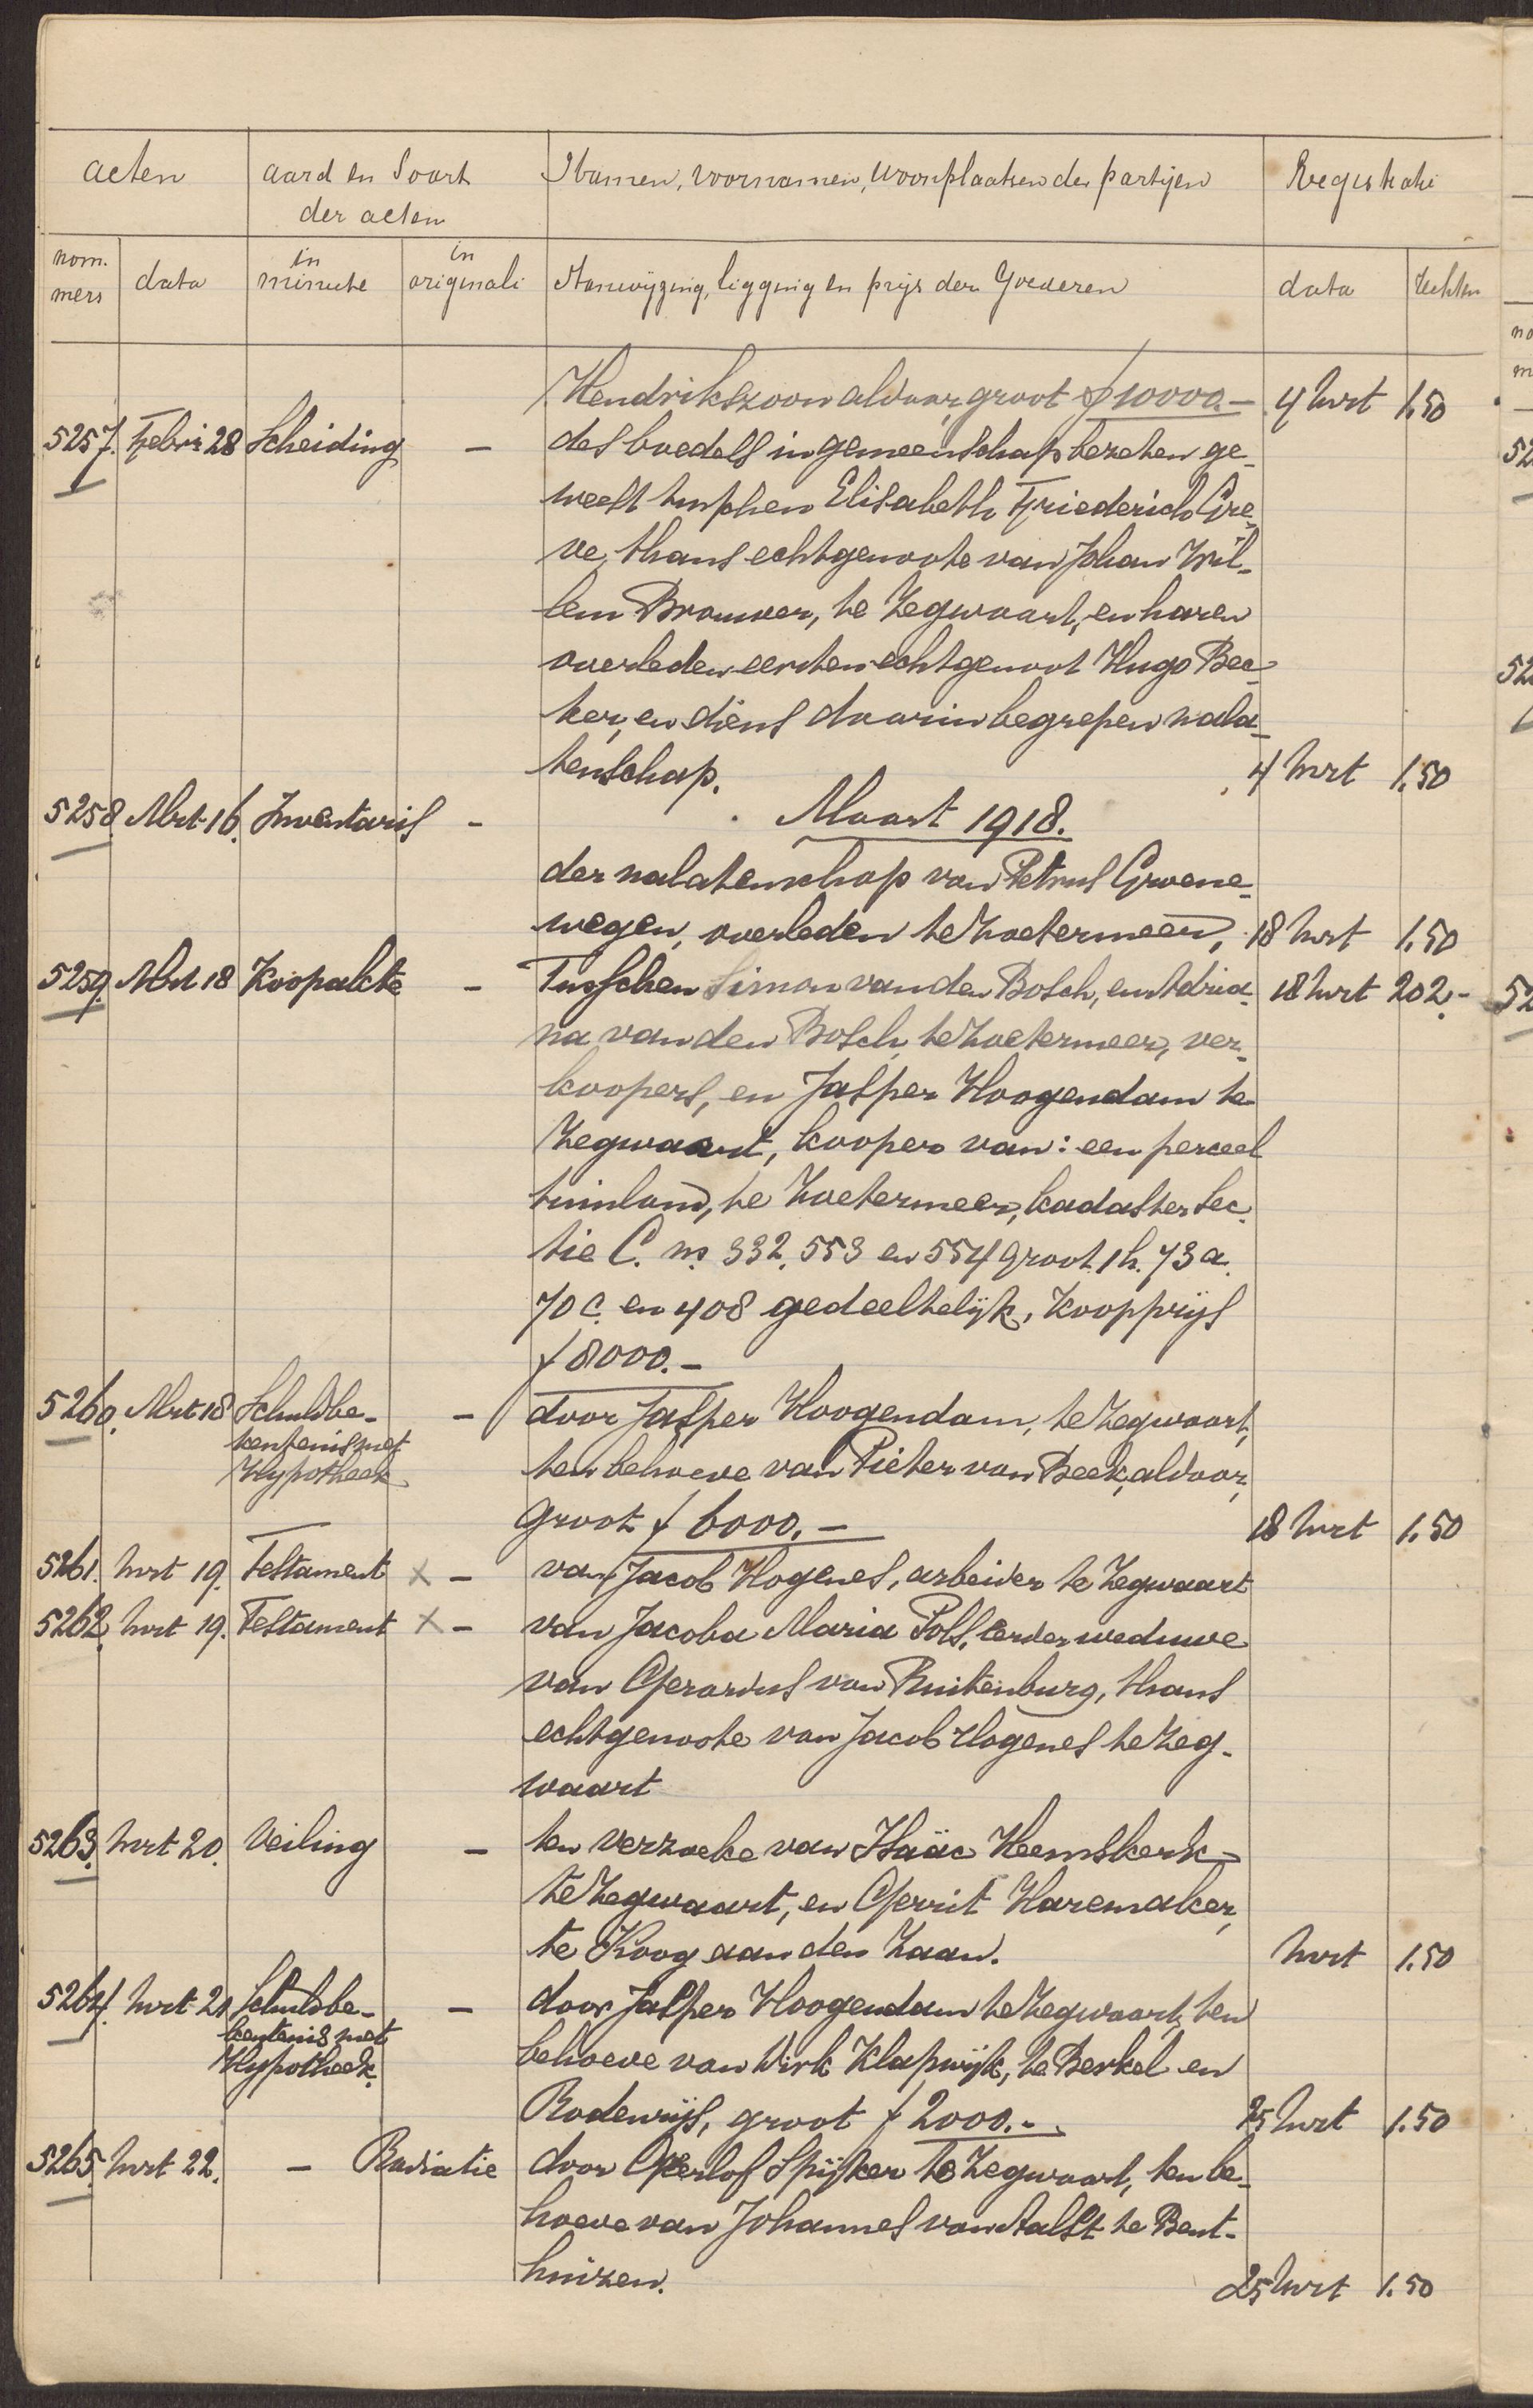 acten aard en Soort Namen, voornamen, woonplaatsen der partijen Registratie
der acten
nom. in in
mers data minute originali Aanwijzing, ligging en prijs der Goederen data rechten
Hendrikszoon aldaar, groot f 10000.- 4 Mrt 1.50
5257. Febri 28 Scheiding - des boedels in gemeenschap bezeten ge-
weest tusschen Elisabeth Friederich Gre-
ve, thans echtgenoote van Johan Wil-
lem Brouwer, te Zegwaart, en haren
overleden eersten echtgenoot Hugo Bec-
ker, en diens daarin begrepen nala-
tenschap. 4 Mrt 1.50
5258 Mrt 16. Inventaris - Maart 1918.
der nalatenschap van Petrus Groene-
wegen, overleden te Zoetermeer, 18 Mrt 1.50
5259. Mrt 18 Koopakte - Tusschen Simon van den Bosch, en Adria- 18 Mrt 202.-
na van den Bosch, te Zoetermeer, ver-
koopers, en Jasper Hoogendam te
Zegwaart, kooper van: een perceel
tuinland, te Zoetermeer, kadaster sec-
tie C. no. 332, 553 en 554 groot 1 h. 73 a.
70 c. en 408 gedeeltelijk, Koopprijs
f 8000.-
5260. Mrt 18 Schuldbe- - door Jasper Hoogendam, te Zegwaart,
kentenis met
Hypotheek ten behoeve van Pieter van Beek, aldaar,
groot f 6000.- 18 Mrt 1.50
5261. Mrt 19. Testament x - van Jacob Hogenes, arbeider te Zegwaart
5262. Mrt 19. Testament x - van Jacoba Maria Pols, eerder weduwe
van Gerardus van Ruitenburg, thans
echtgenoote van Jacob Hogenes te Zeg-
waart
5263. Mrt 20. Veiling - ten verzoeke van Isaäc Heemskerk
te Zegwaart, en Gerrit Haremaker,
te Koog aan den Zaan. Mrt 1.50
5264. Mrt 21 Schuldbe- - door Jasper Hoogendam te Zegwaart, ten
kentenis met
Hypotheek. behoeve van Dirk Klapwijk, te Berkel en
Rodenrijs, groot f 2000.- 25 Mrt 1.50
5265. Mrt 22. - Radiatie door Gerlof Spijker te Zegwaart, ten be-
hoeve van Johannes van Aalst te Bent-
huizen. 25 Mrt 1.50